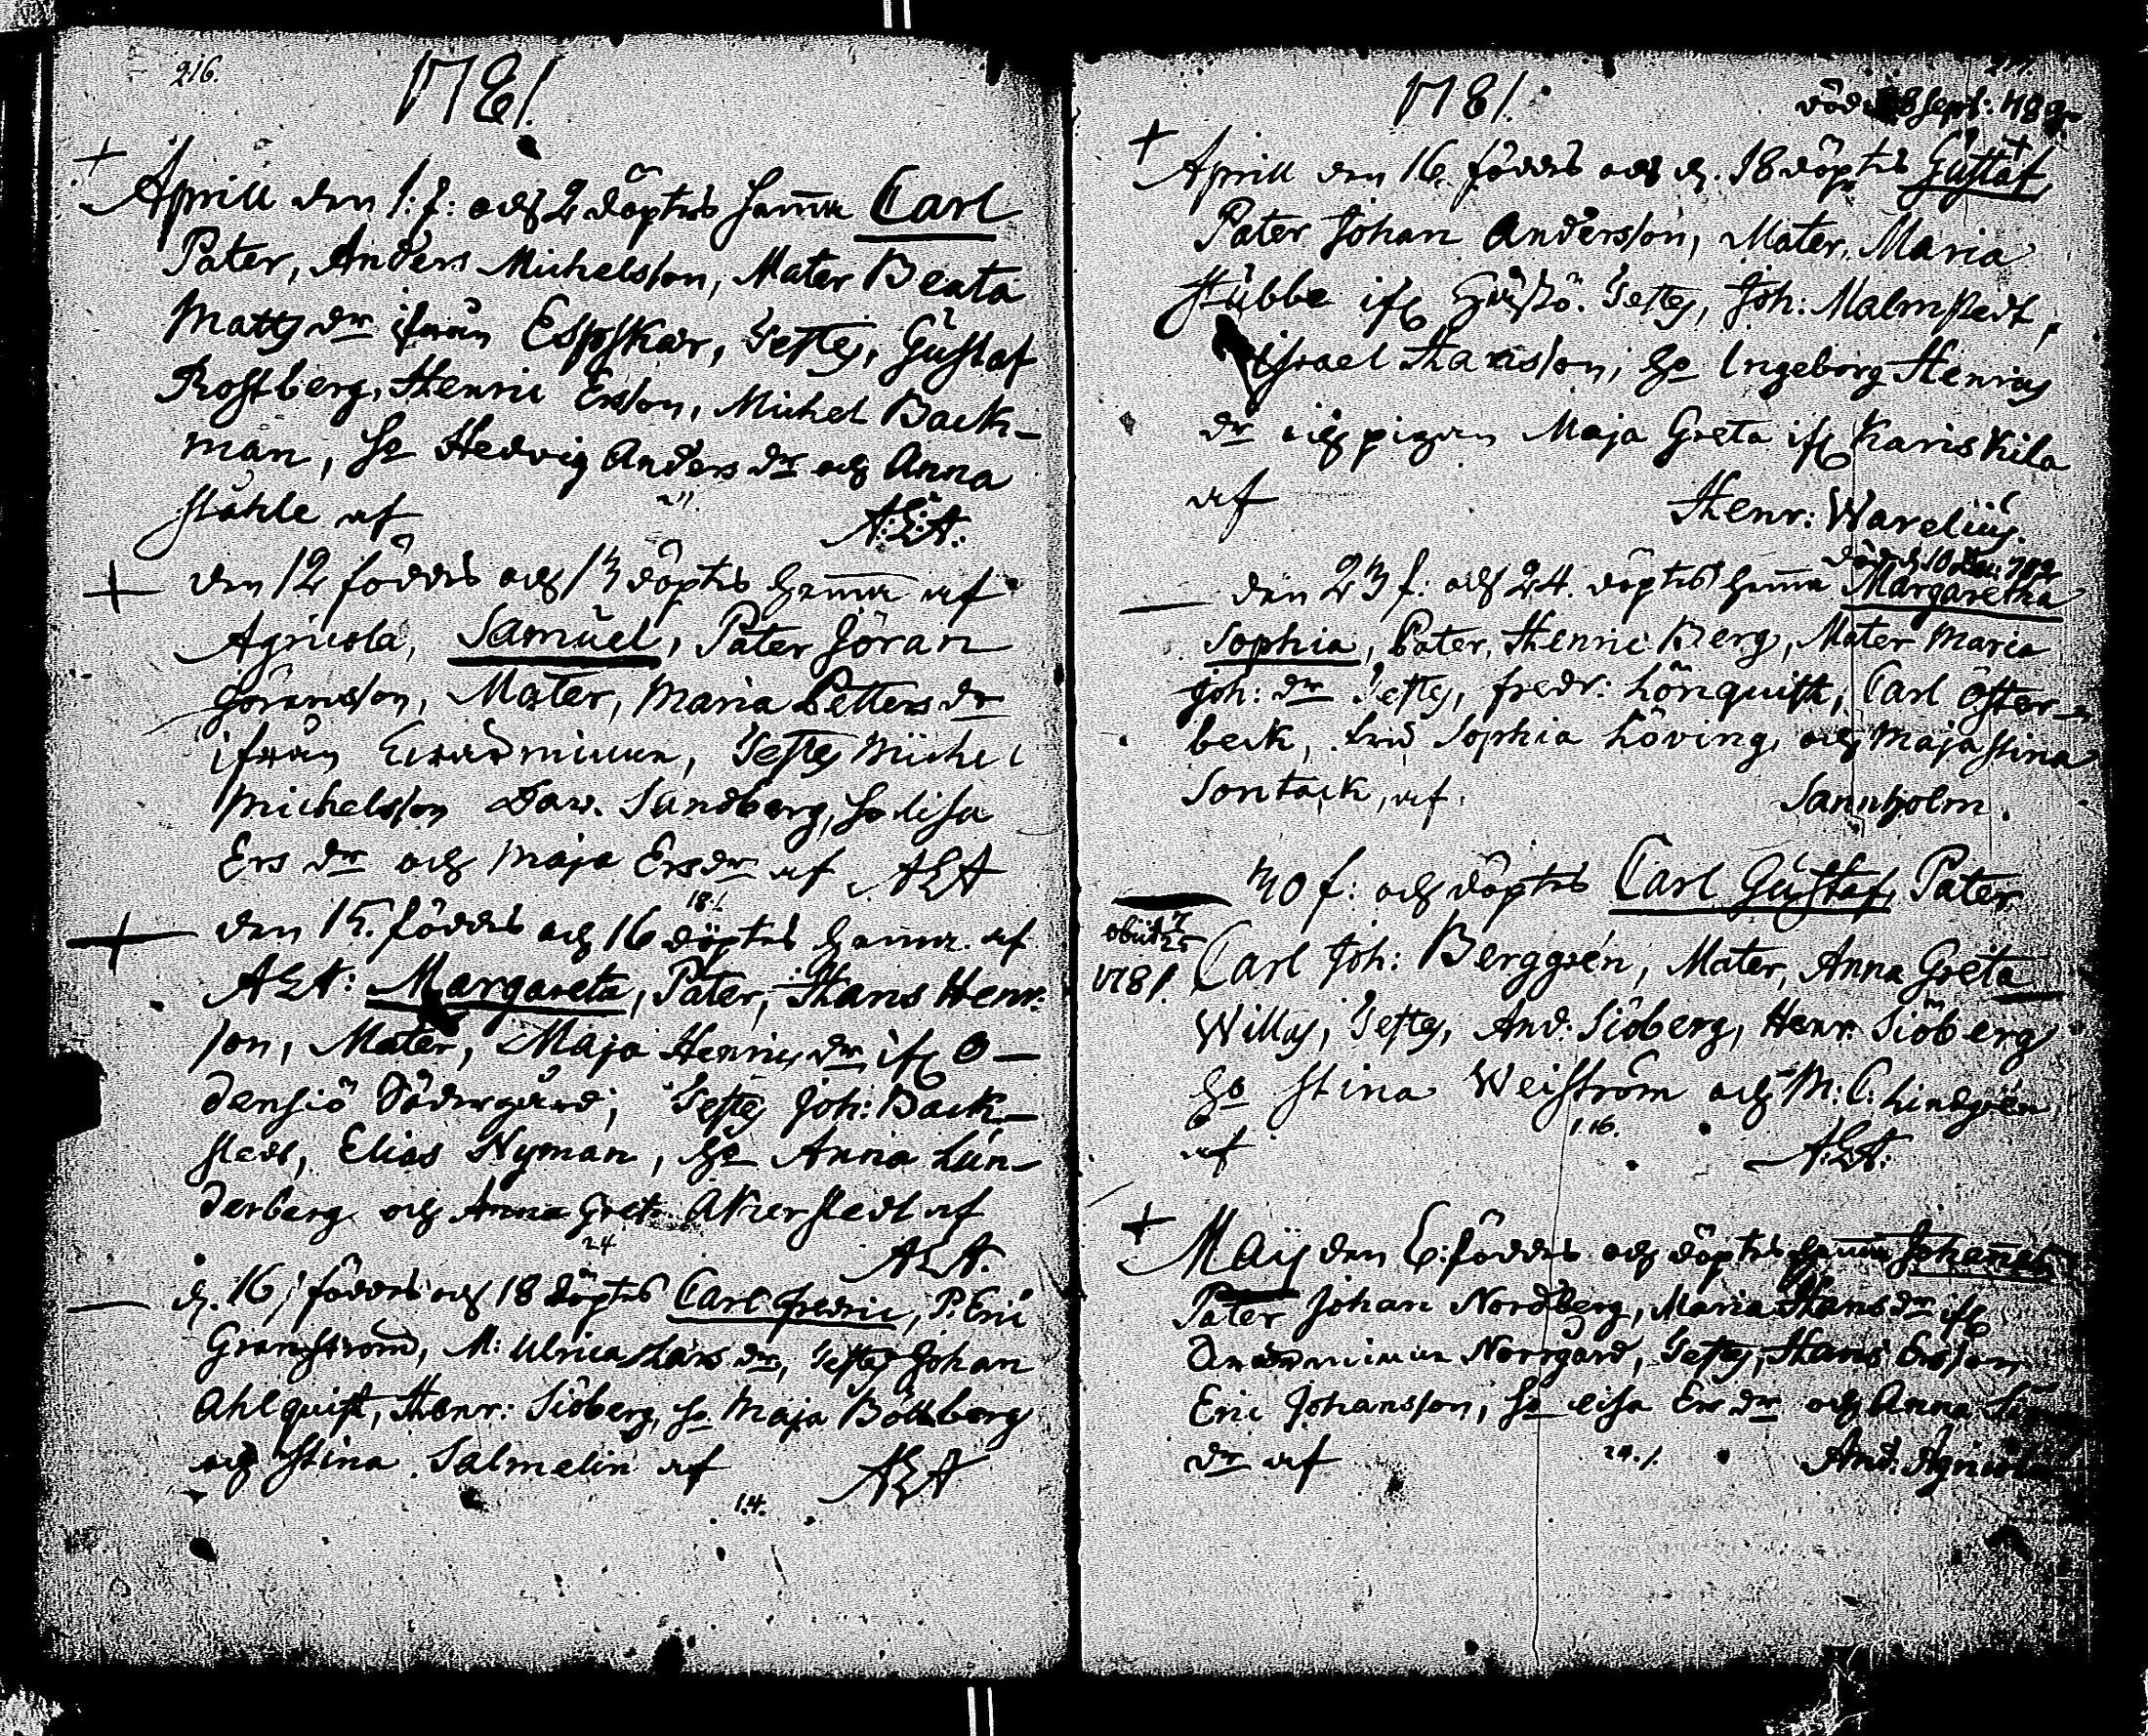 216.
1781.
Aprill den 1. f: och 2 döptes hemma Carl
Pater, Anders Michelsson, Mater Beata
Matts dr ifrån Espskär, Testes, Gustaf
Rostberg, Henric Ersson, Michel Back-
man, Ho Hedvig Anders dr och Anna
Ståhle af A:L:A:
den 12 föddes och 13 döptes hemma af
Agricola, Samuel, Pater Jöran
Göransson, Mater, Maria Petters dr
ifrån Testes Michel
Michelsson Dav. Sundberg, Ho Lisa
Ers dr och Maja Ers dr af ALA
18.
den 15. föddes och 16 döptes hemma af
ALA: Margareta, Pater, Hans Henr:
son, Mater, Maja Henrics dr ifr O-
densiö Södergård; Testes Joh: Back-
stedt, Elias Nyman, Ho Anna Lun-
derberg och Anna Greta Akerstedt af
24 ALA.
d. 16 föddes och 18 döptes Carl Fredric, P. Eric
Granström, M: Ulrica Lars dr, Testes Johan
Ahlquist, Henr: Siöberg, Ho Maja Böckberg
och Stina Salmelin af ALA
14.
1781.
död Sept: 1782
Aprill den 16. föddes och d. 18 döptes Gustaf
Pater Johan Andersson, Mater, Maria
Stubbe ifr Testes, Joh: Malmstedt,
Israel Hansson, Ho Ingeborg Henrics
dr och pigan Maja Greta ifr Kariskila
af Henr: Warelius.
död d. 10 1782
den 23 f: och 24. döptes hemma Margaretha
Sophia, Pater, Henric Berg, Mater Maria
Joh: dr Testes, Fredr: Lönquist, Carl Öster-
beck, Sophia Löving och Maja Stina
Sontack, af. Sannholm.
30 f: och döptes Carl Gustaf, Pater
obiit 7/25
1781. Carl Joh: Berggrén, Mater, Anna Greta
Wills, Testes, And: Siöberg, Henr. Siöberg
Ho Stina Weiström och M: C: Lindgrén
af 116. A:L:A:
Maij den 6: föddes och döptes hemma Johannes
Pater Johan Nordberg, Maria Hans dr ifr
Norrgård, Testes, Hans Ersson
Eric Johansson, Ho Lisa Ers dr och Anna
dr af 24. And: Agricola